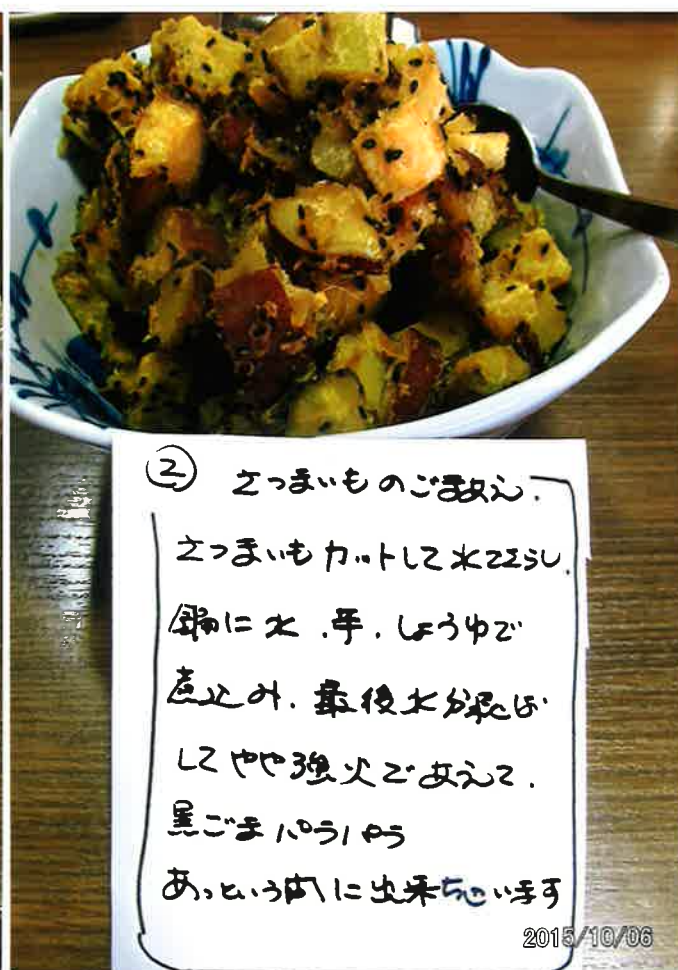 ② さつまいものごまあえ.
さつまいもカットして水でさらし.
鍋に水.芋.しょうゆで
煮込み.最後水分飛ば
してやや強火であえて.
黒ごまパラパラ
あっという間に出来ちゃいます
2015/10/06